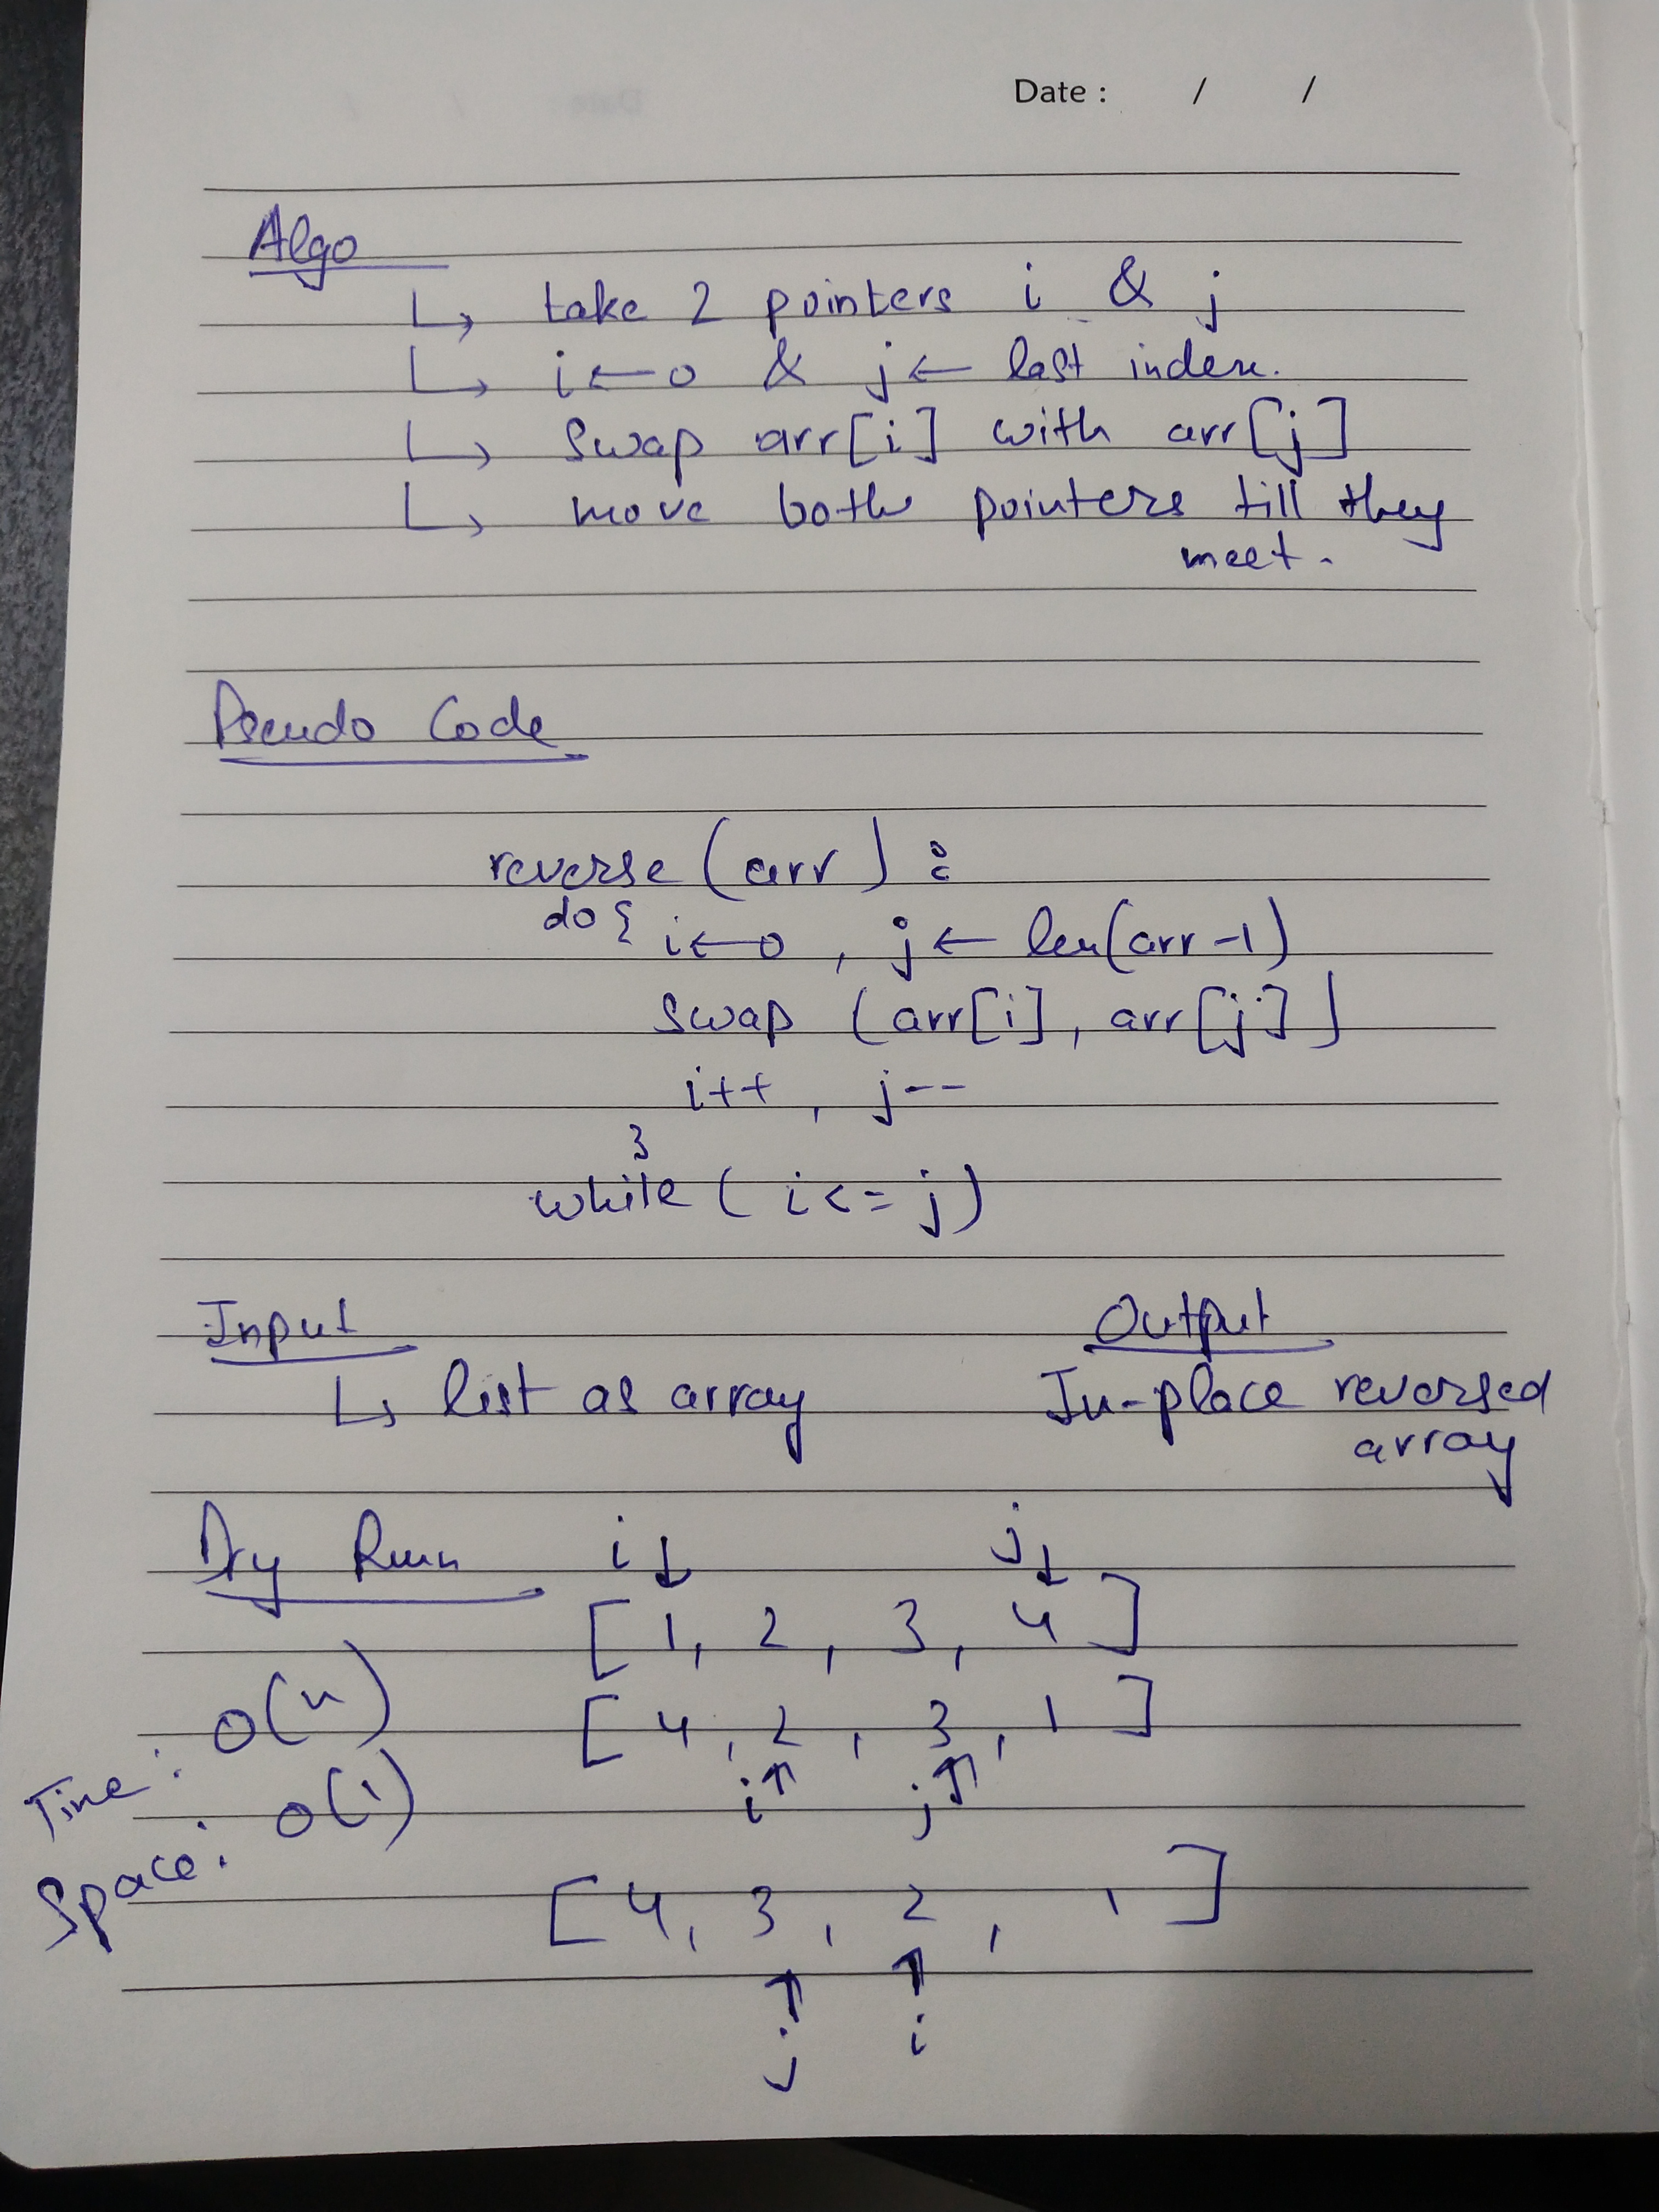 Date : / /
Algo
↳ take 2 pointers i & j
↳ i ← 0 & j ← last index.
↳ swap arr[i] with arr[j]
↳ move both pointers till they
meet.
Pseudo Code
reverse (arr) :
do { i ← 0 , j ← len(arr -1)
swap (arr[i], arr[j])
i++ , j--
}
while ( i <= j)
Input Output
↳ list as array In-place reversed
array
Dry Run i↓ j↓
[ 1, 2 , 3, 4 ]
Time : O(n) [ 4 , 2 , 3 , 1 ]
i↑ j↑
Space : O(1)
[ 4, 3 , 2 , 1 ]
↑ ↑
j i